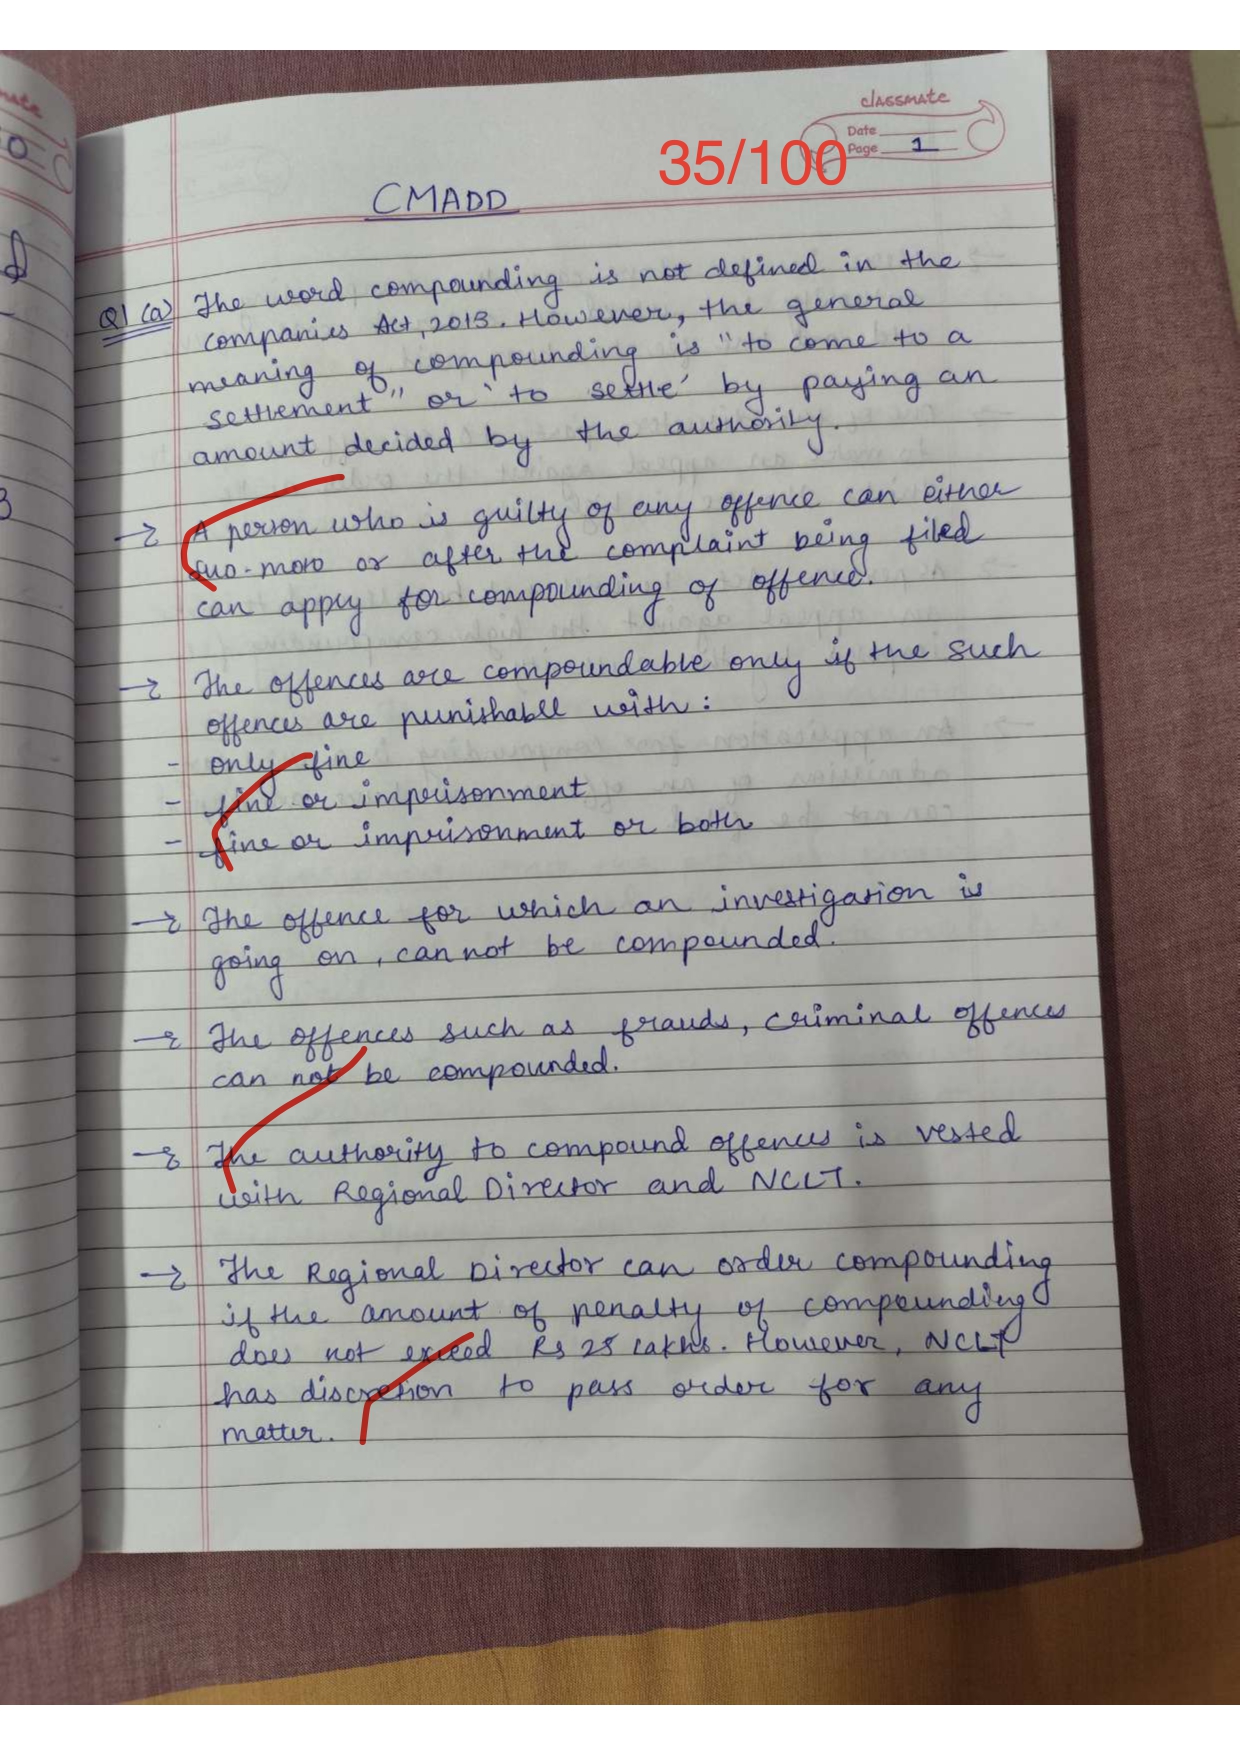 classmate
Date
Page 1
35/100
CMADD
Q1(a) The word compounding is not defined in the
companies Act, 2013. However, the general
meaning of compounding is "to come to a
settlement" or 'to settle' by paying an
amount decided by the authority.
→ A person who is guilty of any offence can either
suo-moto or after the complaint being filed
can apply for compounding of offence.
→ The offences are compoundable only if the such
offences are punishable with:
- only fine
- fine or imprisonment
- fine or imprisonment or both
→ The offence for which an investigation is
going on, can not be compounded.
→ The offences such as frauds, criminal offences
can not be compounded.
→ The authority to compound offences is vested
with Regional Director and NCLT.
→ The Regional Director can order compounding
if the amount of penalty of compounding
does not exceed Rs 25 lakhs. However, NCLT
has discretion to pass order for any
matter.